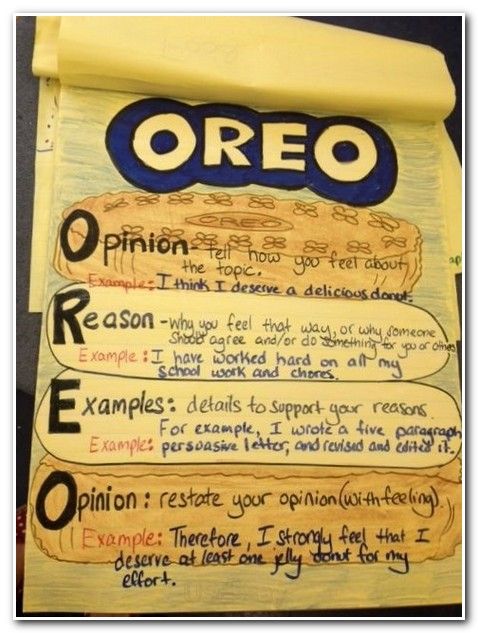 OREO
OREO
Opinion - Tell how you feel about
the topic.
Example: I think I deserve a delicious donut.
Reason - why you feel that way, or why someone
should agree and/or do something for you or others
Example: I have worked hard on all my
school work and chores.
Examples: details to support your reasons.
For example, I wrote a five paragraph
Example: persuasive letter, and revised and edited it.
Opinion: restate your opinion (with feeling).
Example: Therefore, I strongly feel that I
deserve at least one jelly donut for my
effort.